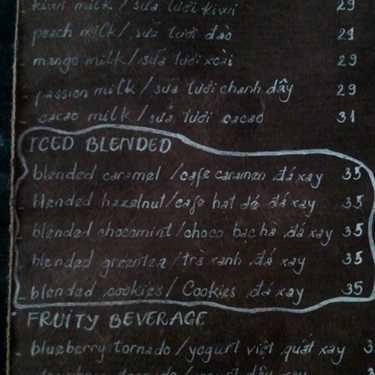 kiwi milk / sữa tươi kiwi 29
peach milk / sữa tươi đào 29
mango milk / sữa tươi xoài 29
passion milk / sữa tươi chanh dây 29
cacao milk / sữa tươi cacao 31
ICED BLENDED
blended caramel / cafe caramen đá xay 35
blended hazelnut / cafe hạt dẻ đá xay 35
blended chocomint / choco bạc hà đá xay 35
blended greentea / trà xanh đá xay 35
blended cookies / Cookies đá xay 35
FRUITY BEVERAGE
blueberry tornado / yogurt việt quất xay 3